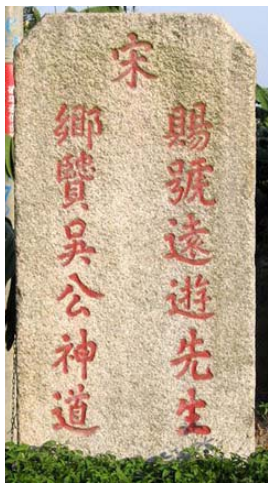 宋
賜號遠遊先生
鄉賢吳公神道